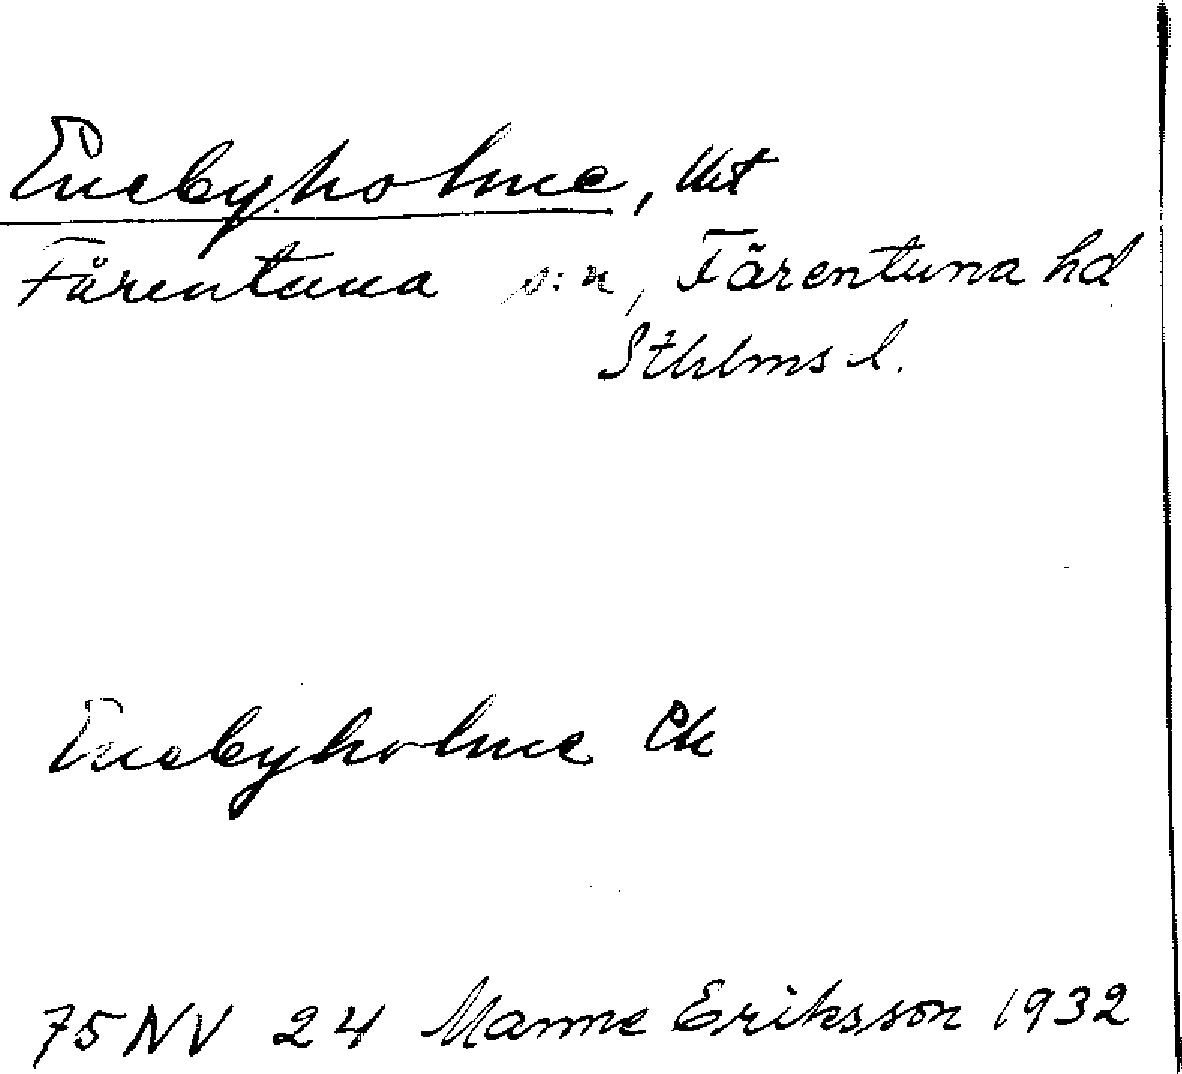 Enebyholme, Ukt
Färentuna s:n, Färentuna hd
Sthlms l.
Enebyholme Ek
75 NV 24 Manne Eriksson 1932